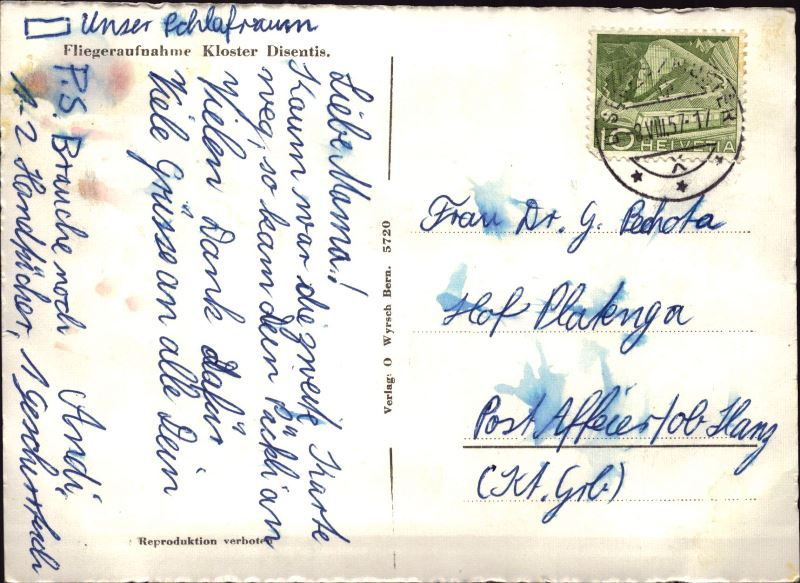 Unser Schlafraum
Fliegeraufnahme Kloster Disentis.
Liebe Mama!
Kaum war die zweite Karte
weg, so kam dein Päckli an
Vielen Dank dafür
Viele Grüsse an alle Dein
Andi
P.S. Brauche noch
1-2 Handtücher, 1 Geschirrtuch
Verlag: O Wyrsch Bern. 5720
Reproduktion verboten
5 HELVETIA
8.VIII.57-17
Frau Dr. G. Pechota
Hof Platenga
Post Affeier/ob Ilanz
(Kt. Grb)